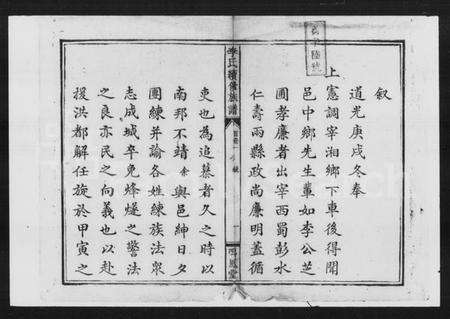 叙
道光庚戌冬奉
上憲調宰湘鄉下車後得聞
邑中鄉先生輩如李公芝
圃孝廉者出宰西蜀彭水
仁壽兩縣政尚廉明蓋循
李氏續修族譜
吏也為追慕者久之時以
南邦不靖余與邑紳日夕
團練并諭各姓練族法眾
志成城卒免烽燧之警法
之良亦民之向義也以赴
援洪都解任旋於甲寅之